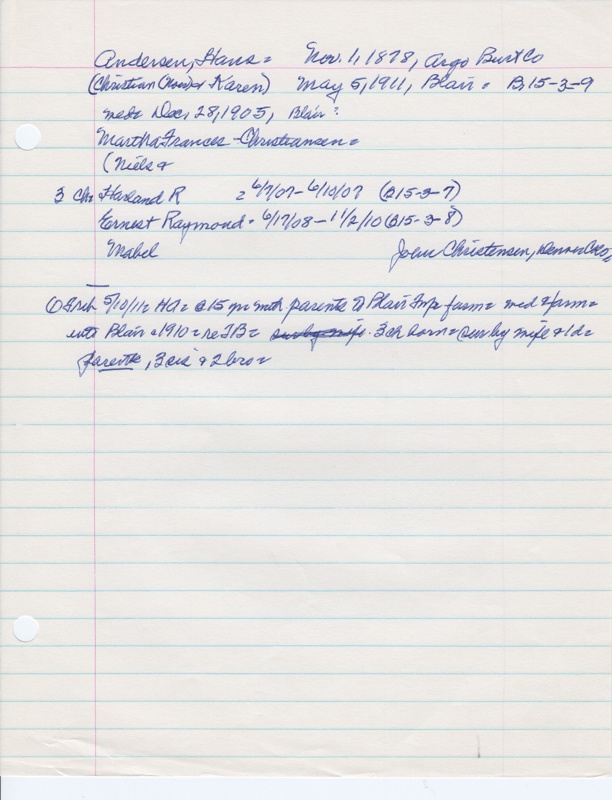 Andersen, Hans = Nov. 1, 1878, Argo Burt Co
(Christian & Karen) May 5, 1911, Blair = B15-3-9
md= Dec. 28, 1905, Blair?
Martha Frances Christiansen =
(Niels &
3 Ch= Harland R = 6/7/07 - 6/10/07 (B15-3-7)
Ernest Raymond = 6/17/08 - 1/2/10 (B15-3-8)
Mabel Joan Christensen, Denver Colo,
① 5/10/11 = HA = @15 yr with parents to Blair Twp farm = wed & farm =
into Blair c1910 = re TB = sur by wife 3 ch born = sur by wife & 1d =
parents, 3 sis & 2 bro =